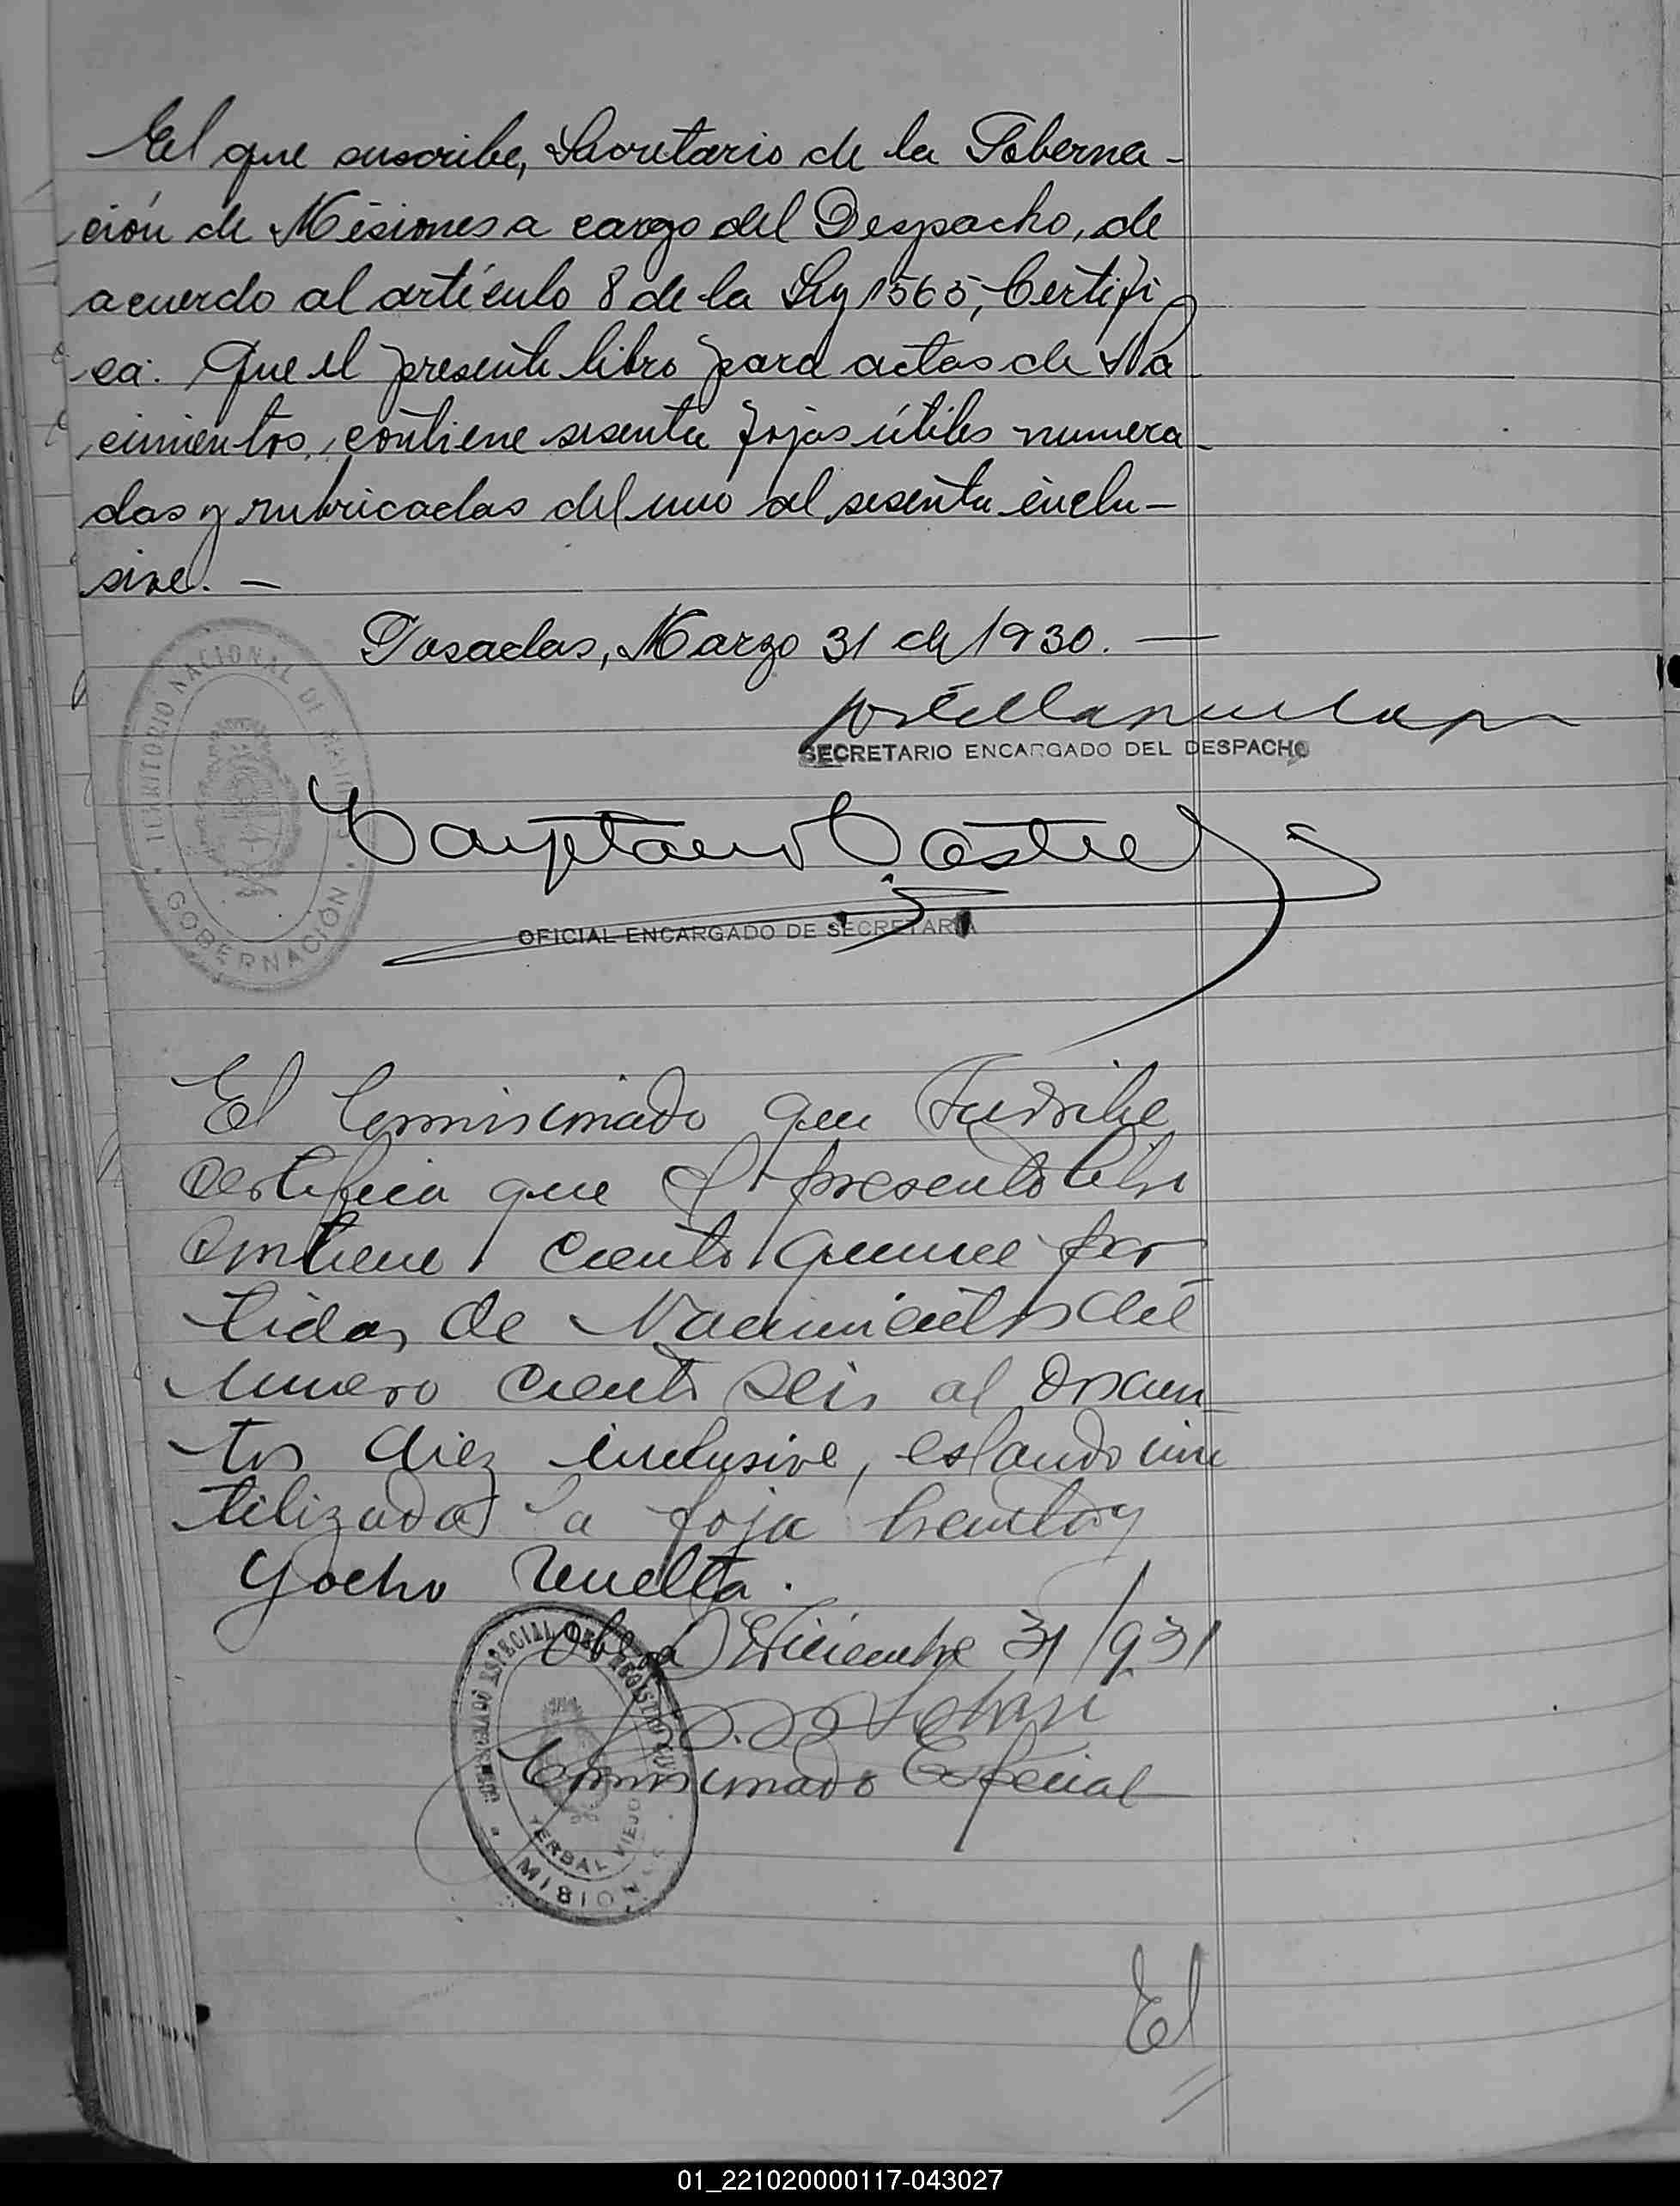 El que suscribe, Secretario de la Goberna-
ción de Misiones a cargo del Despacho, de
acuerdo al artículo 8 de la Ley 1565, Certifi
ca: Que el presente libro para actas de Na
cimientos, contiene sesenta fojas útiles numera-
das y rubricadas del uno al sesenta inclu-
sive. —
Posadas, Marzo 31 de 1930. —
SECRETARIO ENCARGADO DEL DESPACHO
TERRITORIO NACIONAL DE MISIONES
GOBERNACIÓN
Cayetano Castre
OFICIAL ENCARGADO DE SECRETARIA
El Comisionado que Suscribe
Certifica que el presente libro
Contiene ciento quince par
tidas de Nacimientos del
numero ciento seis al doscien-
tos diez inclusive, estando inu
tilizada la foja treinta y
y ocho vuelta.
Oberá Diciembre 31/931
Comisionado Especial
COMISIONADO ESPECIAL DEL REGISTRO CIVIL
YERBAL VIEJO
MISIONES
El
01_221020000117-043027